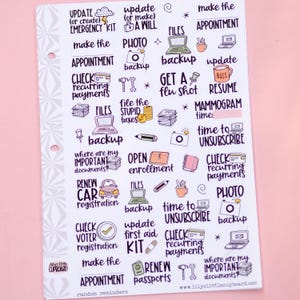 UPDATE
(or create!)
EMERGENCY KIT
update
(or make!)
A WILL
make the
APPOINTMENT
PHOTO
backup
FILES
backup
CHECK
recurring
payments
GET A
flu shot
update
RESUME
FILES
backup
file the
STUPID
taxes
MAMMOGRAM
time
time to
UNSUBSCRIBE
where are my
IMPORTANT
documents?
OPEN
enrollment
CHECK
recurring
payments
RENEW
CAR
registration
FILES
backup
time to
UNSUBSCRIBE
PHOTO
backup
CHECK
VOTER
registration
update
first aid
KIT
CHECK
recurring
payments
make the
APPOINTMENT
RENEW
passports
where are my
IMPORTANT
documents?
random reminders
www.lilyslittlecupboard.com